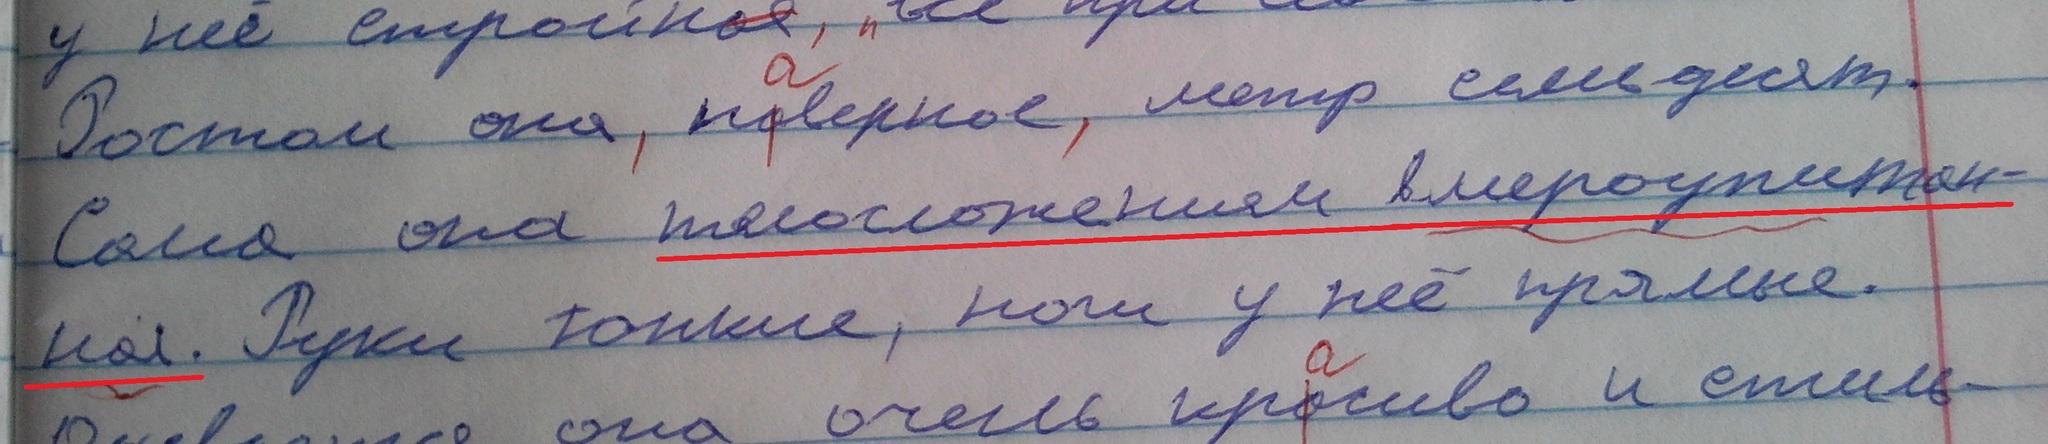 у неё стройная, "всё при
Ростом она, наверное, метр семьдесят.
Сама она тялосложениям вмероупитан-
ная. Руки тонкие, ноги у неё прямые.
она очень красиво и стиль-